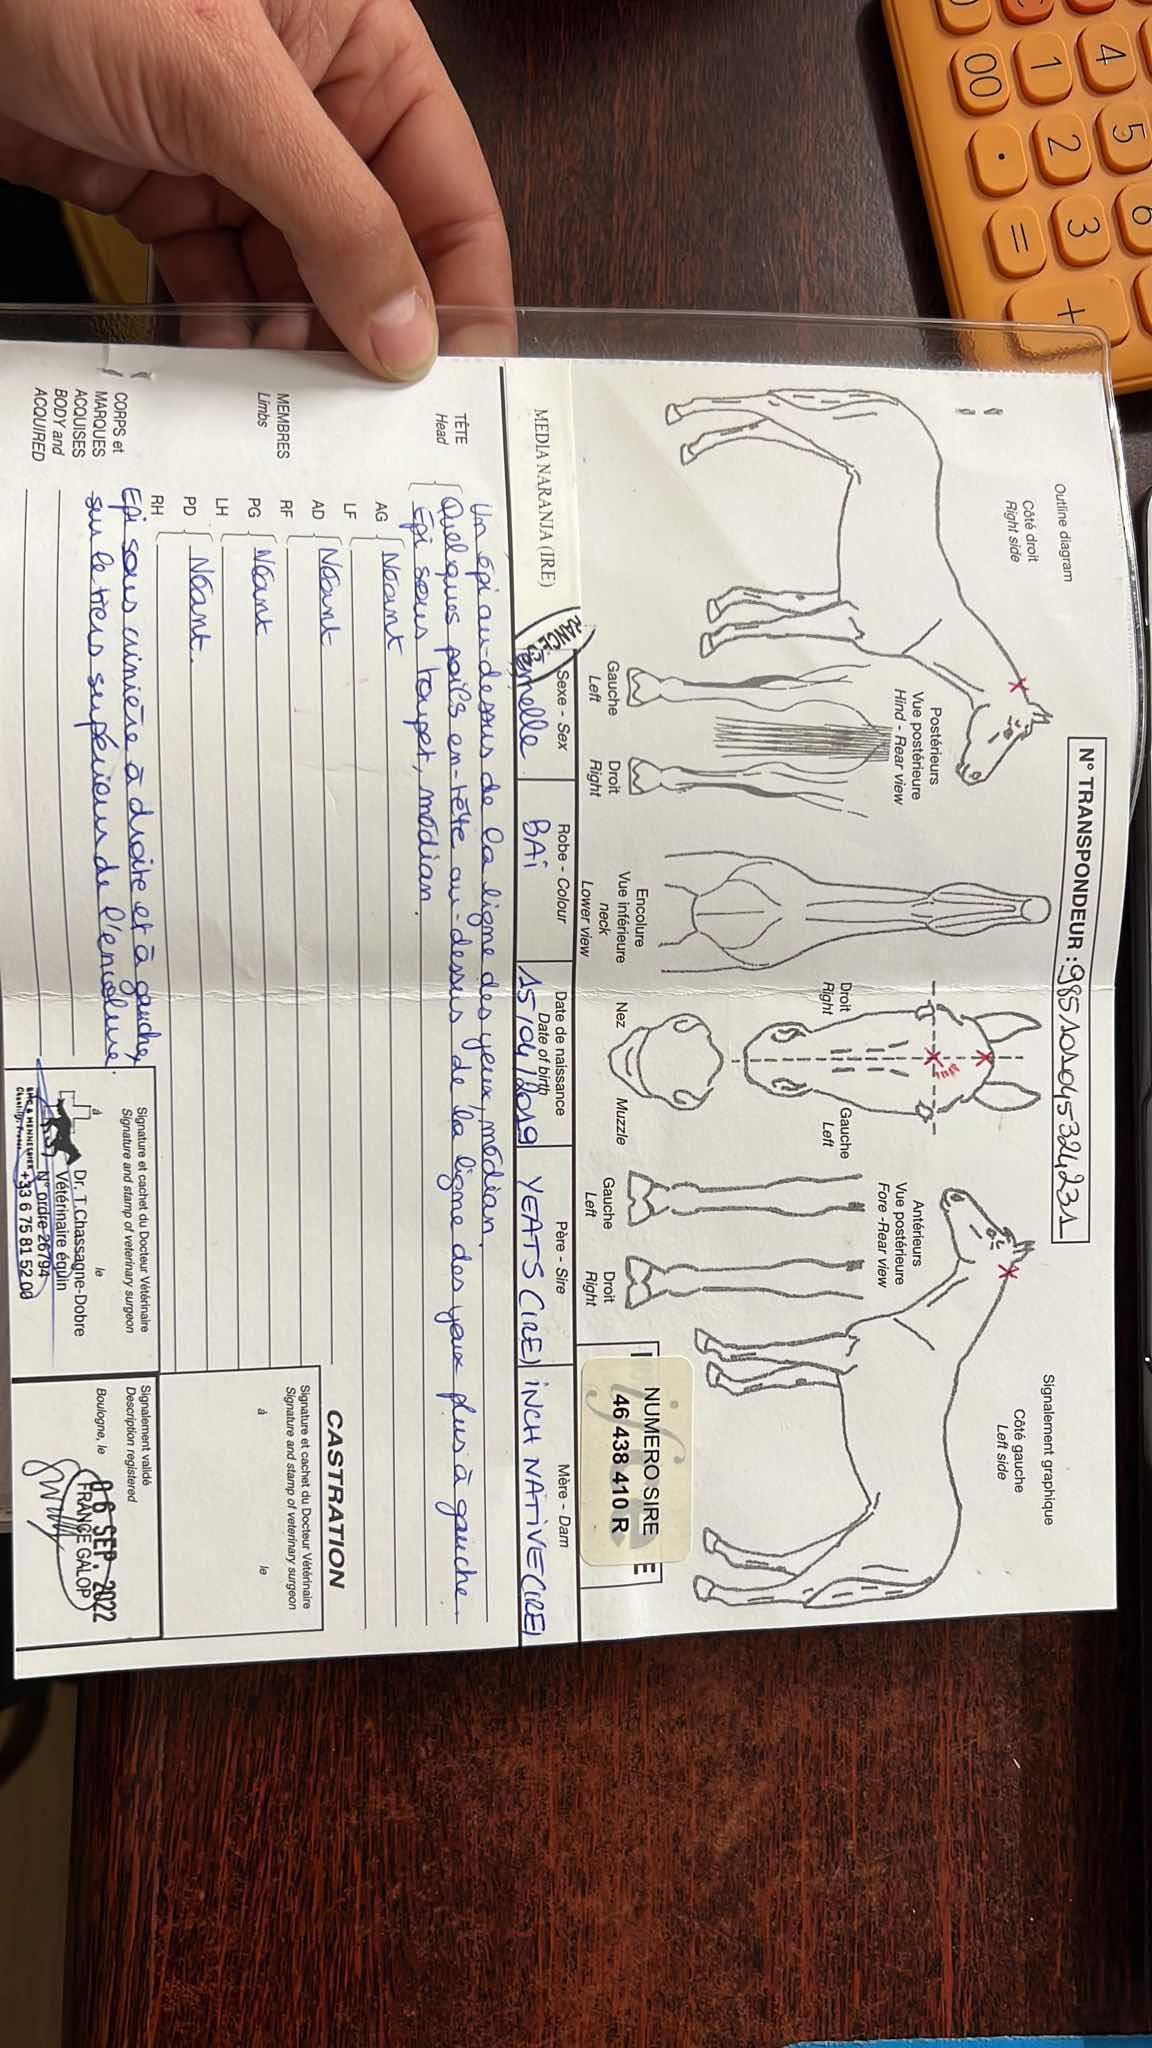 N° TRANSPONDEUR : 985101045324231
Outline diagram
Signalement graphique
Côté droit
Right side
Côté gauche
Left side
Postérieurs
Vue postérieure
Hind - Rear view
Droit
Right
Gauche
Left
Antérieurs
Vue postérieure
Fore -Rear view
Gauche
Left
Droit
Right
Encolure
Vue inférieure
neck
Lower view
Nez
Muzzle
Gauche
Left
Droit
Right
NUMERO SIRE
46 438 410 R
E
MEDIA NARANJA (IRE)
Sexe - Sex
Femelle
Robe - Colour
BAi
Date de naissance
Date of birth
15/04/2019
Père - Sire
YEATS (IRE)
Mère - Dam
INCH NATIVE (IRE)
TÊTE
Head
Un épi au-dessus de la ligne des yeux, médian.
Quelques poils en-tête au-dessus de la ligne des yeux plus à gauche.
Epi sous toupet, médian.
MEMBRES
Limbs
AG
LF
Néant
AD
RF
Néant
PG
LH
Néant
PD
RH
Néant.
CASTRATION
Signature et cachet du Docteur Vétérinaire
Signature and stamp of veterinary surgeon
à
le
CORPS et
MARQUES
ACQUISES
BODY and
ACQUIRED
Epi sous crinière à droite et à gauche,
sur le tiers supérieur de l'encolure.
Signature et cachet du Docteur Vétérinaire
Signature and stamp of veterinary surgeon
à
le
Dr. T.Chassagne-Dobre
Vétérinaire équin
N° ordre 26794
+33 6 75 81 52 00
Signalement validé
Description registered
Boulogne, le
06 SEP. 2022
FRANCE GALOP
4
5
6
1
2
3
00
.
=
+